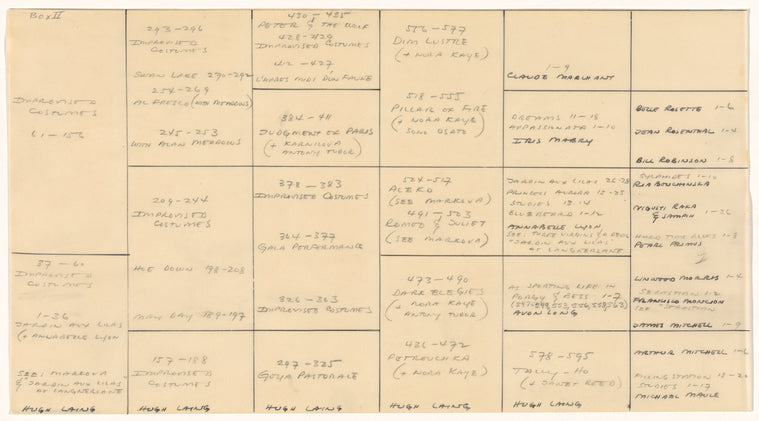 Box II
IMPROVISED
COSTUMES
61-156
37-60
IMPROVISED
COSTUMES
1-36
JARDIN AUX LILAS
(+ ANNABELLE LYON
SEE: MARKOVA
& JARDIN AUX LILAS
AT LANGNERSLANE
HUGH LAING
293-296
IMPROVISED
COSTUMES
SWAN LAKE 290-292
254-269
AL FRESCO (WITH MEADOWS)
245-253
WITH ALAN MEADOWS
209-244
IMPROVISED
COSTUMES
HOE DOWN 198-208
MAY DAY 189-197
157-188
IMPROVISED
COSTUMES
HUGH LAING
430-435
PETER & THE WOLF
428-429
IMPROVISED COSTUMES
412-427
L'APRES MIDI D'UN FAUNE
384-411
JUDGMENT OF PARIS
(+ KARNILOVA
ANTONY TUDOR)
378-383
IMPROVISED COSTUMES
364-377
GALA PERFORMANCE
326-363
IMPROVISED COSTUMES
297-325
GOYA PASTORALE
HUGH LAING
556-577
DIM LUSTRE
(+ NORA KAYE)
518-555
PILLAR OF FIRE
(+ NORA KAYE)
SONO OSATO
504-517
ALEKO
(SEE MARKOVA)
491-503
ROMEO & JULIET
(SEE MARKOVA)
473-490
DARK ELEGIES
(+ NORA KAYE
ANTONY TUDOR)
436-472
PETROUCHKA
(+ NORA KAYE)
HUGH LAING
1-9
CLAUDE MARCHANT
DREAMS 11-18
APPASSIONATA 1-10
IRIS MABRY
JARDIN AUX LILAS 26-28
PRINCESS AURORA 15-25
STUDIES 13-14
BLUEBEARD 1-12
ANNABELLE LYON
SEE: THREE VIRGINS & A DEVIL
"JARDIN AUX LILAS"
AT LANGNERSLANE
AS SPORTING LIFE IN
PORGY & BESS 1-7
AVON LONG
578-595
TALLY-HO
(+ JANET REED)
HUGH LAING
BELLE ROSETTE 1-6
JEAN ROSENTHAL 1-4
BILL ROBINSON 1-8
PYRAMIDES 1-10
RIA BOUCHINSKA
& SAMPIH 1-26
HARD TIME BLUES 1-3
PEARL PRIMUS
LINWOOD MORRIS 1-4
SEBASTIAN 1-2
FRANCISCO MONCION
SEE "SEBASTIAN
JAMES MITCHELL 1-9
ARTHUR MITCHELL 1-6
FILLING STATION 18-20
STUDIES 1-17
MICHAEL MAULE